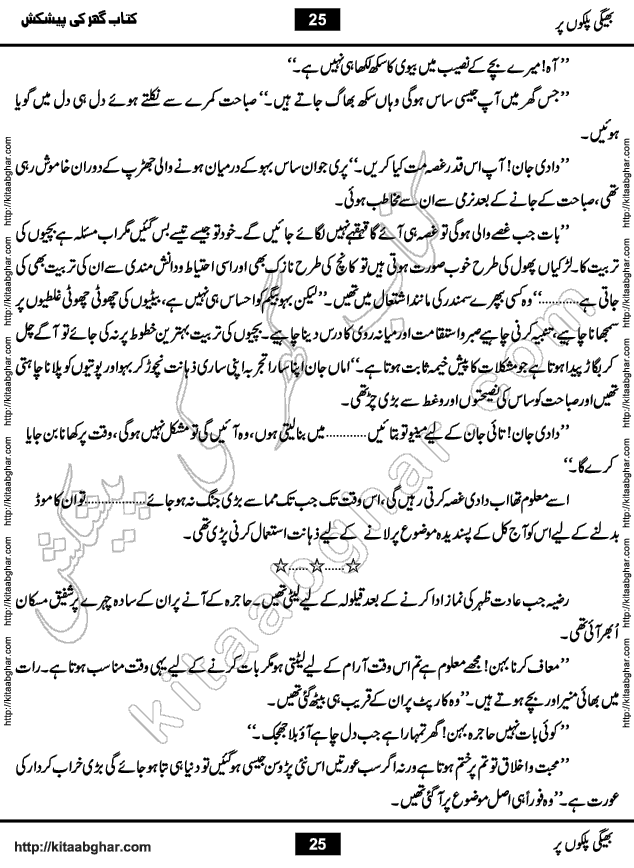 بھیگی پلکوں پر 25 کتاب گھر کی پیشکش
’’آہ! میرے بچے کے نصیب میں بیوی کا سکھ لکھا ہی نہیں ہے۔‘‘
’’جس گھر میں آپ جیسی ساس ہوگی وہاں سکھ بھاگ جاتے ہیں۔‘‘ صباحت کمرے سے نکلتے ہوئے دل ہی دل میں گویا
ہوئیں۔
’’دادی جان! آپ اس قدر غصہ مت کیا کریں۔‘‘ پری جو ان ساس بہو کے درمیان ہونے والی جھڑپ کے دوران خاموش رہی
تھی، صباحت کے جانے کے بعد نرمی سے ان سے مخاطب ہوئی۔
’’بات جب غصے والی ہوگی تو غصہ ہی آئے گا قہقہے نہیں لگائے جائیں گے۔ خود تو جیسے تیسے بس گئیں مگر اب مسئلہ ہے بچیوں کی
تربیت کا۔ لڑکیاں پھول کی طرح خوب صورت ہوتی ہیں تو کانچ کی طرح نازک بھی اور اسی احتیاط و دانش مندی سے ان کی تربیت بھی کی
جاتی ہے............‘‘ وہ کسی بپھرے سمندر کی مانند اشتعال میں تھیں۔ ’’لیکن بہو بیگم کو احساس ہی نہیں ہے، بیٹیوں کی چھوٹی چھوٹی غلطیوں پر
سمجھانا چاہیے، تنبیہ کرنی چاہیے صبر و استقامت اور میانہ روی کا درس دینا چاہیے۔ بچیوں کی تربیت بہترین خطوط پر نہ کی جائے تو آگے چل
کر بگاڑ پیدا ہوتا ہے جو مشکلات کا پیش خیمہ ثابت ہوتا ہے۔‘‘ اماں جان اپنا سارا تجربہ اپنی ساری ذہانت نچوڑ کر بہو اور پوتیوں کو پلانا چاہتی
تھیں اور صباحت کو ساس کی نصیحتوں اور وعظ سے بڑی چڑ تھی۔
’’دادی جان! تائی جان کے لیے مینو تو بتائیں............ میں بنا لیتی ہوں، وہ آئیں گی تو مشکل نہیں ہوگی، وقت پر کھانا بن جایا
کرے گا۔‘‘
اسے معلوم تھا اب دادی غصہ کرتی رہیں گی، اس وقت تک جب تک مما سے بڑی جنگ نہ ہو جائے............... تو ان کا موڈ
بدلنے کے لیے اس کو آج کل کے پسندیدہ موضوع پر لانے کے لیے ذہانت استعمال کرنی پڑی تھی۔
☆......☆......☆
رضیہ حسب عادت ظہر کی نماز ادا کرنے کے بعد قیلولہ کے لیے لیٹی تھیں۔ حاجرہ کے آنے پر ان کے سادہ چہرے پر شفیق مسکان
اُبھر آئی تھی۔
’’معاف کرنا بہن! مجھے معلوم ہے تم اس وقت آرام کے لیے لیٹتی ہو مگر بات کرنے کے لیے یہی وقت مناسب ہوتا ہے۔ رات
میں بھائی منیر اور بچے ہوتے ہیں۔‘‘ وہ کارپٹ پر ان کے قریب ہی بیٹھ گئی تھیں۔
’’کوئی بات نہیں حاجرہ بہن! گھر تمہارا ہے جب دل چاہے آؤ بلا جھجک۔‘‘
’’محبت و اخلاق تو تم پر ختم ہوتا ہے ورنہ اگر سب عورتیں اس نئی پڑوسن جیسی ہو گئیں تو دنیا ہی تباہ ہو جائے گی بڑی خراب کردار کی
عورت ہے۔‘‘ وہ فوراً ہی اصل موضوع پر آ گئی تھیں۔
کتاب گھر کی پیشکش
kitaabghar.com
http://kitaabghar.com http://kitaabghar.com http://kitaabghar.com http://kitaabghar.com http://kitaabghar.com http://kitaabghar.com
http://kitaabghar.com http://kitaabghar.com http://kitaabghar.com http://kitaabghar.com http://kitaabghar.com http://kitaabghar.com
بھیگی پلکوں پر 25 http://kitaabghar.com